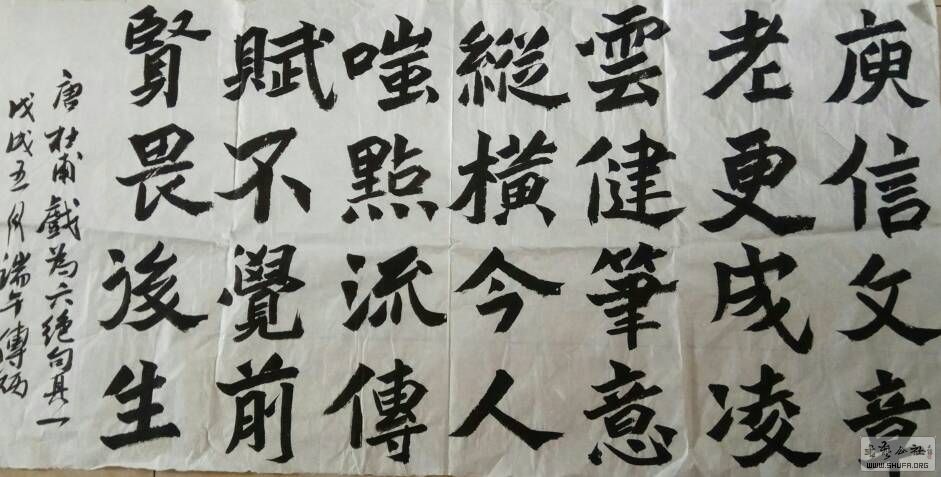 庾信文章
老更成凌
雲健筆意
縱橫今人
嗤點流傳
賦不覺前
賢畏後生
唐杜甫戲為六绝句其一
戊戌五月端午傳
WWW.SHUFA.ORG